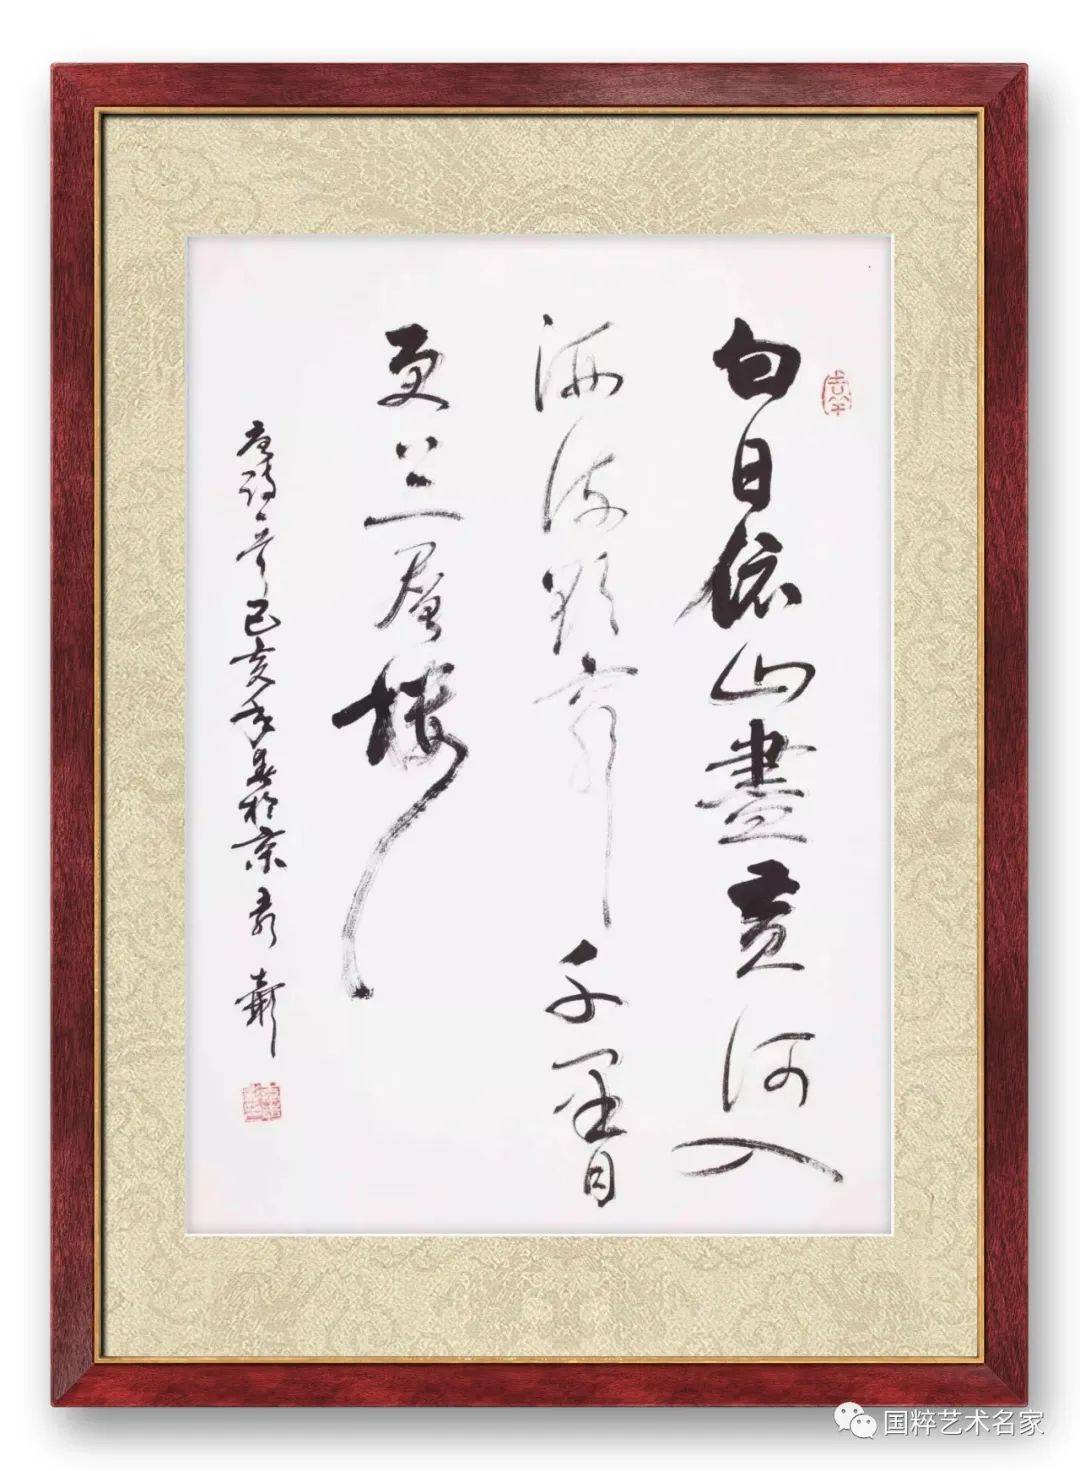 白日依山盡黄河入
海流欲窮千里目
更上一層樓
唐詩一首己亥年春於京
国粹艺术名家